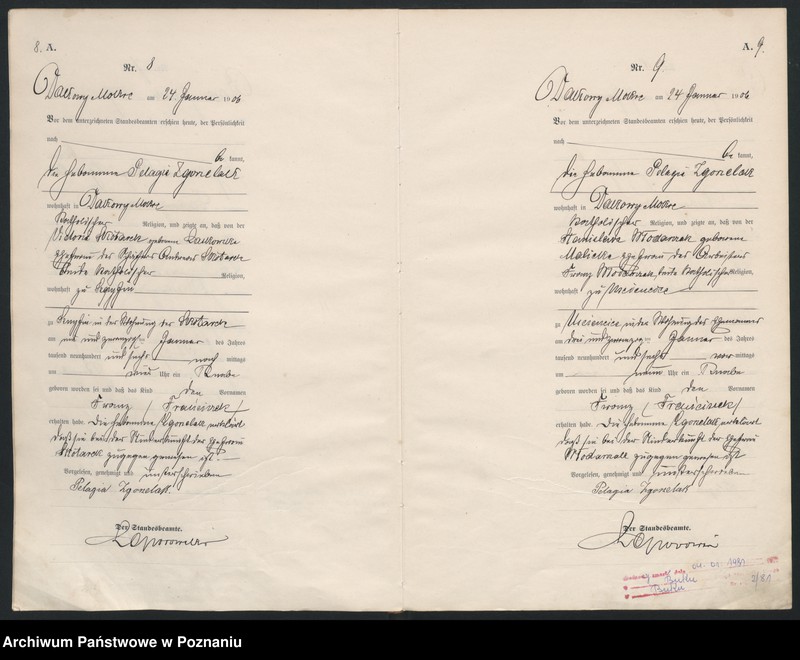 8. A.
Nr. 8
Dakowy Mokre am 24 Januar 1906
Vor dem unterzeichneten Standesbeamten erschien heute, der Persönlichkeit
nach
be kannt,
die Hebamme Pelagia Zgonelak
wohnhaft in Dakowy Mokre
katholischer Religion, und zeigte an, daß von der
Victoria geborene
Ehefrau des
beide katholischer Religion,
wohnhaft zu
zu in der Wohnung der
am und zwanzig Januar des Jahres
tausend neunhundert und sechs nach mittags
um neun Uhr ein Knabe
geboren worden sei und daß das Kind den Vornamen
Franz / Franciszek /
erhalten habe. Die Hebamme Zgonelak erklärt
daß sie bei der Niederkunft der Ehefrau
zugegen gewesen ist.
Vorgelesen, genehmigt und unterschrieben
Pelagia Zgonelak
Der Standesbeamte.
A. 9.
Nr. 9
Dakowy Mokre am 24 Januar 1906
Vor dem unterzeichneten Standesbeamten erschien heute, der Persönlichkeit
nach
be kannt,
die Hebamme Pelagia Zgonelak
wohnhaft in Dakowy Mokre
katholischer Religion, und zeigte an, daß von der
geborene
Ehefrau des Arbeiters
Franz beide katholischer Religion,
wohnhaft zu
zu in der Wohnung des Ehemannes
am drei und zwanzig Januar des Jahres
tausend neunhundert und sechs vor mittags
um neun Uhr ein Knabe
geboren worden sei und daß das Kind den Vornamen
Franz / Franciszek /
erhalten habe. Die Hebamme Zgonelak erklärt
daß sie bei der Niederkunft der Ehefrau
zugegen gewesen ist
Vorgelesen, genehmigt und unterschrieben
Pelagia Zgonelak
Der Standesbeamte.
Buku
Buku
2/81
Archiwum Państwowe w Poznaniu